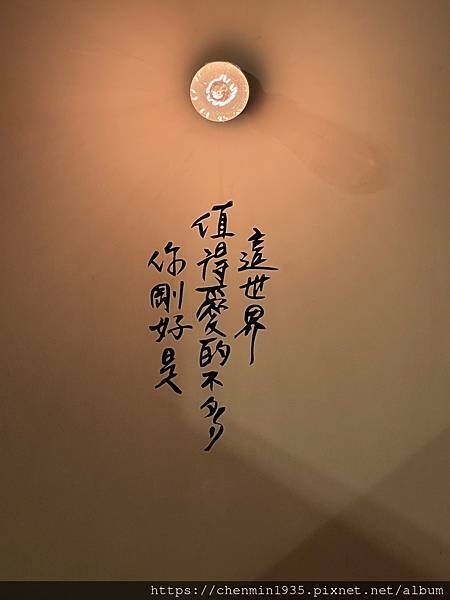 這世界
值得愛的不多
你剛好是
https://chenmin1935.pixnet.net/album